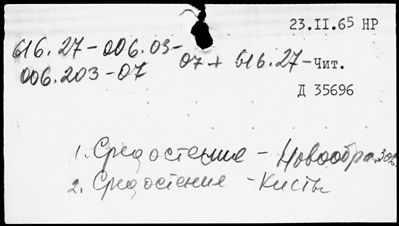 23.II.65 НР
616.27-006.03-
006.203-07
07 + 616.27-Чит.
Д 35696
1. Средостение - Новообраз.
2. Средостение - Кисты